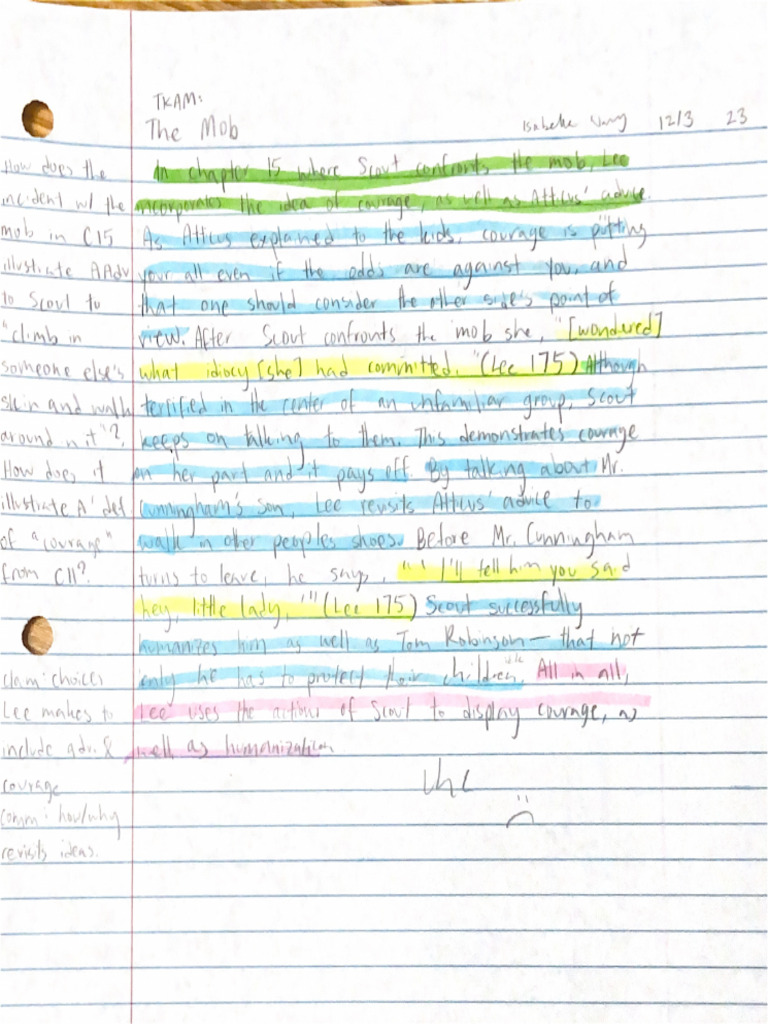 TKAM:
The Mob
Isabelle 12/3 23
How does the
incident w/ the
mob in C15
illustrate AAdv
to Scout to
"climb in
someone else's
skin and walk
around n it"?
How does it
illustrate A' def
of "courage"
from C11?
claim: choices
Lee makes to
include adv. &
courage
comm: how/why
revisits ideas.
In chapter 15 where Scout confronts the mob, Lee
incorporates the idea of courage, as well as Atticus' advice.
As Atticus explained to the kids, courage is putting
your all even if the odds are against you, and
that one should consider the other side's point of
view. After Scout confronts the mob she, "[wondered]
what idiocy [she] had committed. "(Lee 175) Although
terrified in the center of an unfamiliar group, Scout
keeps on talking to them. This demonstrates courage
on her part and it pays off. By talking about Mr.
Cunningham's son, Lee revisits Atticus' advice to
walk in other peoples shoes. Before Mr. Cunningham
turns to leave, he says, "' I'll tell him you said
hey, little lady,'" (Lee 175) Scout successfully
humanizes him as well as Tom Robinson— that not
only he has to protect their children. All in all,
Lee uses the actions of Scout to display courage, as
well as humanization